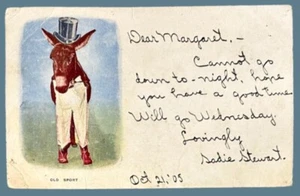 Dear Margaret, -
Cannot go
down to-night, hope
you have a good time.
Will go Wednesday.
Lovingly
Sadie Stewart.
Oct 21, '05
OLD SPORT